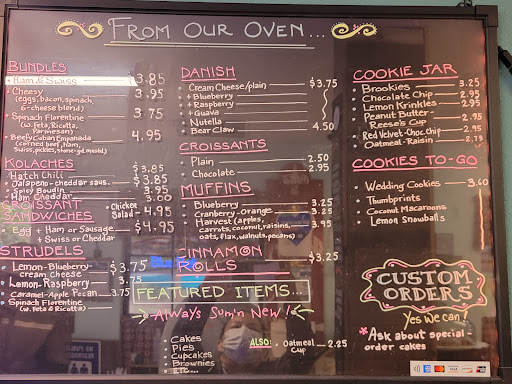 From Our Oven...
BUNDLES
• Ham & Swiss 3.85
• Cheesy 3.95
(eggs, bacon, spinach,
6-cheese blend)
• Spinach Florentine 3.75
(w. Feta, Ricotta,
Parmesan)
• Beefy Cuban Empanada 4.95
(corned beef, ham,
Swiss, pickles, stone-gd. mustd)
KOLACHES
Hatch Chili $3.85
• Jalapeno-cheddar saus. $3.85
• Spicy Boudin 3.95
• Ham Cheddar 3.00
CROISSANT
SANDWICHES
• Chicken
Salad - 4.95
• Egg + Ham or Sausage $4.95
+ Swiss or Cheddar
STRUDELS
• Lemon-Blueberry- $3.75
cream cheese
• Lemon-Raspberry 3.75
• Caramel-Apple Pecan 3.75
• Spinach Florentine
(w. Feta & Ricotta)
DANISH
• Cream Cheese/plain $3.75
• + Blueberry
• + Raspberry
• + Guava
• Nutella
• Bear Claw 4.50
CROISSANTS
• Plain 2.50
• Chocolate 2.95
MUFFINS
• Blueberry 3.25
• Cranberry-Orange 3.25
• Harvest (apples, 3.95
carrots, coconut, raisins,
oats, flax, walnuts, pecans)
CINNAMON
ROLLS $3.25
FEATURED ITEMS...
Always Sum'n New!
• Cakes
• Pies
• Cupcakes
• Brownies
ALSO: • Oatmeal 2.25
Cup
COOKIE JAR
• Brookies 3.25
• Chocolate Chip 2.95
• Lemon Krinkles 2.95
• Peanut Butter 2.95
Reese's Cup
• Red Velvet-Choc. chip 2.95
• Oatmeal-Raisin
COOKIES TO-GO
• Wedding Cookies 3.60
• Thumbprints
• Coconut Macaroons
• Lemon Snowballs
CUSTOM
ORDERS
Yes we can!
* Ask about special-
order cakes